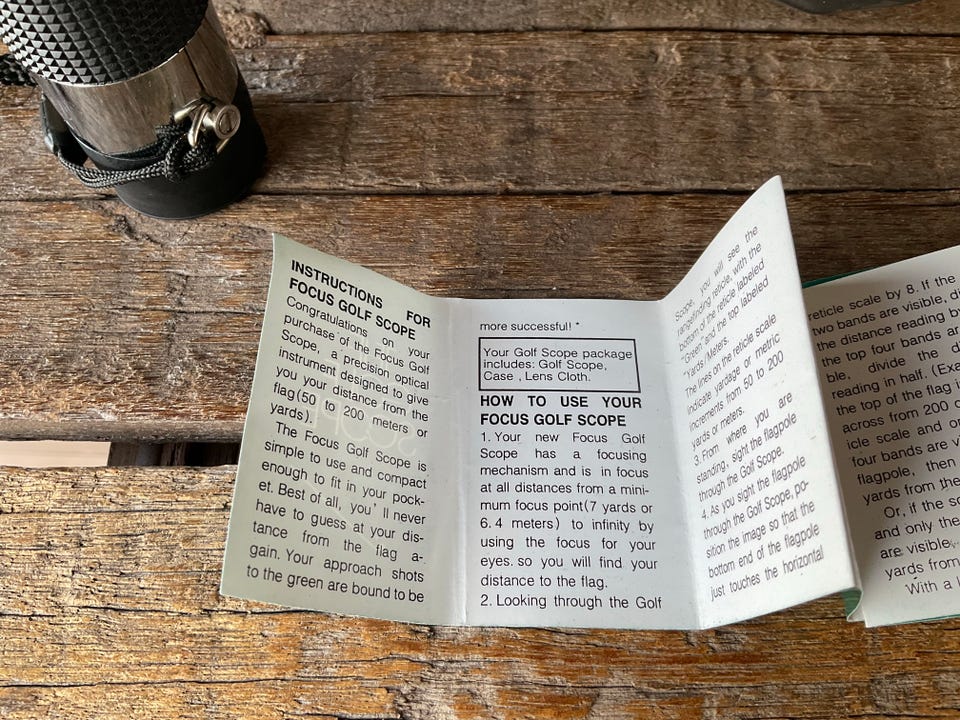 INSTRUCTIONS FOR
FOCUS GOLF SCOPE
Congratulations on your
purchase of the Focus Golf
Scope, a precision optical
instrument designed to give
you your distance from the
flag(50 to 200 meters or
yards).
The Focus Golf Scope is
simple to use and compact
enough to fit in your pock-
et. Best of all, you'll never
have to guess at your dis-
tance from the flag a-
gain. Your approach shots
to the green are bound to be
more successful! *
Your Golf Scope package
includes: Golf Scope,
Case , Lens Cloth.
HOW TO USE YOUR
FOCUS GOLF SCOPE
1. Your new Focus Golf
Scope has a focusing
mechanism and is in focus
at all distances from a mini-
mum focus point(7 yards or
6. 4 meters) to infinity by
using the focus for your
eyes. so you will find your
distance to the flag.
2. Looking through the Golf
Scope, you will see the
rangefinding reticle, with the
bottom of the reticle labeled
"Green" and the top labeled
"Yards / Meters.
The lines on the reticle scale
indicate yardage or metric
increments from 50 to 200
yards or meters.
3. From where you are
standing, sight the flagpole
through the Golf Scope.
4. As you sight the flagpole
through the Golf Scope, po-
sition the image so that the
bottom end of the flagpole
just touches the horizontal
reticle scale by 8. If the
two bands are visible, di
the distance reading by
the top four bands ar
ble, divide the di
reading in half. (Exa
the top of the flag i
across from 200 o
icle scale and or
four bands are v
flagpole, then
yards from the
Or, if the sc
and only the
are visible,
yards from
With a l